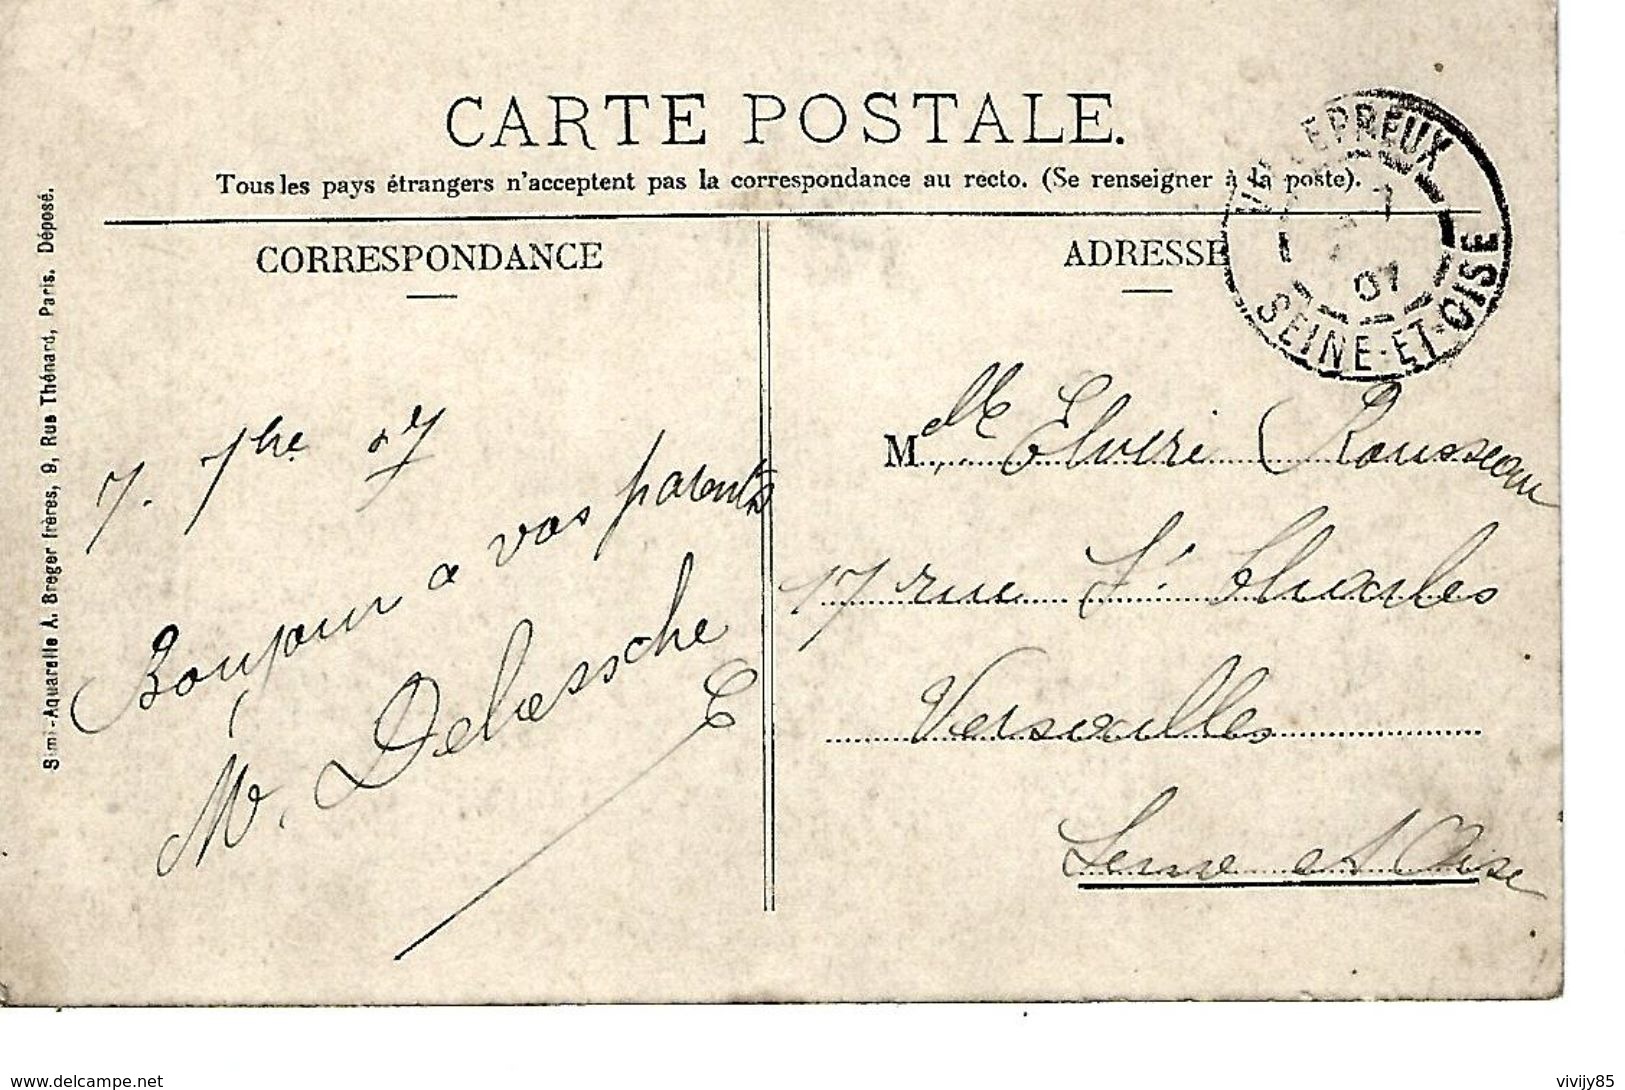 CARTE POSTALE.
Tous les pays étrangers n'acceptent pas la correspondance au recto. (Se renseigner à la poste).
CORRESPONDANCE
7. 7bre 07
Bonjour a vos parents
M. Delassche
Simi-Aquarelle A. Breger frères, 9, Rue Thénard, Paris. Déposé.
ADRESSE
VILLEPREUX
7
07
SEINE-ET-OISE
M elle Elvire Rousseau
17 rue St Charles
Versailles
Seine et Oise
delcampe.net
vivijy85